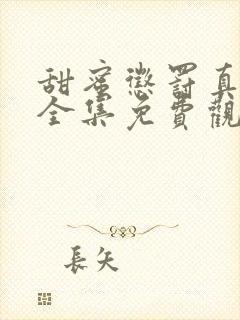 甜蜜懲罰真
全集免費觀
長矢